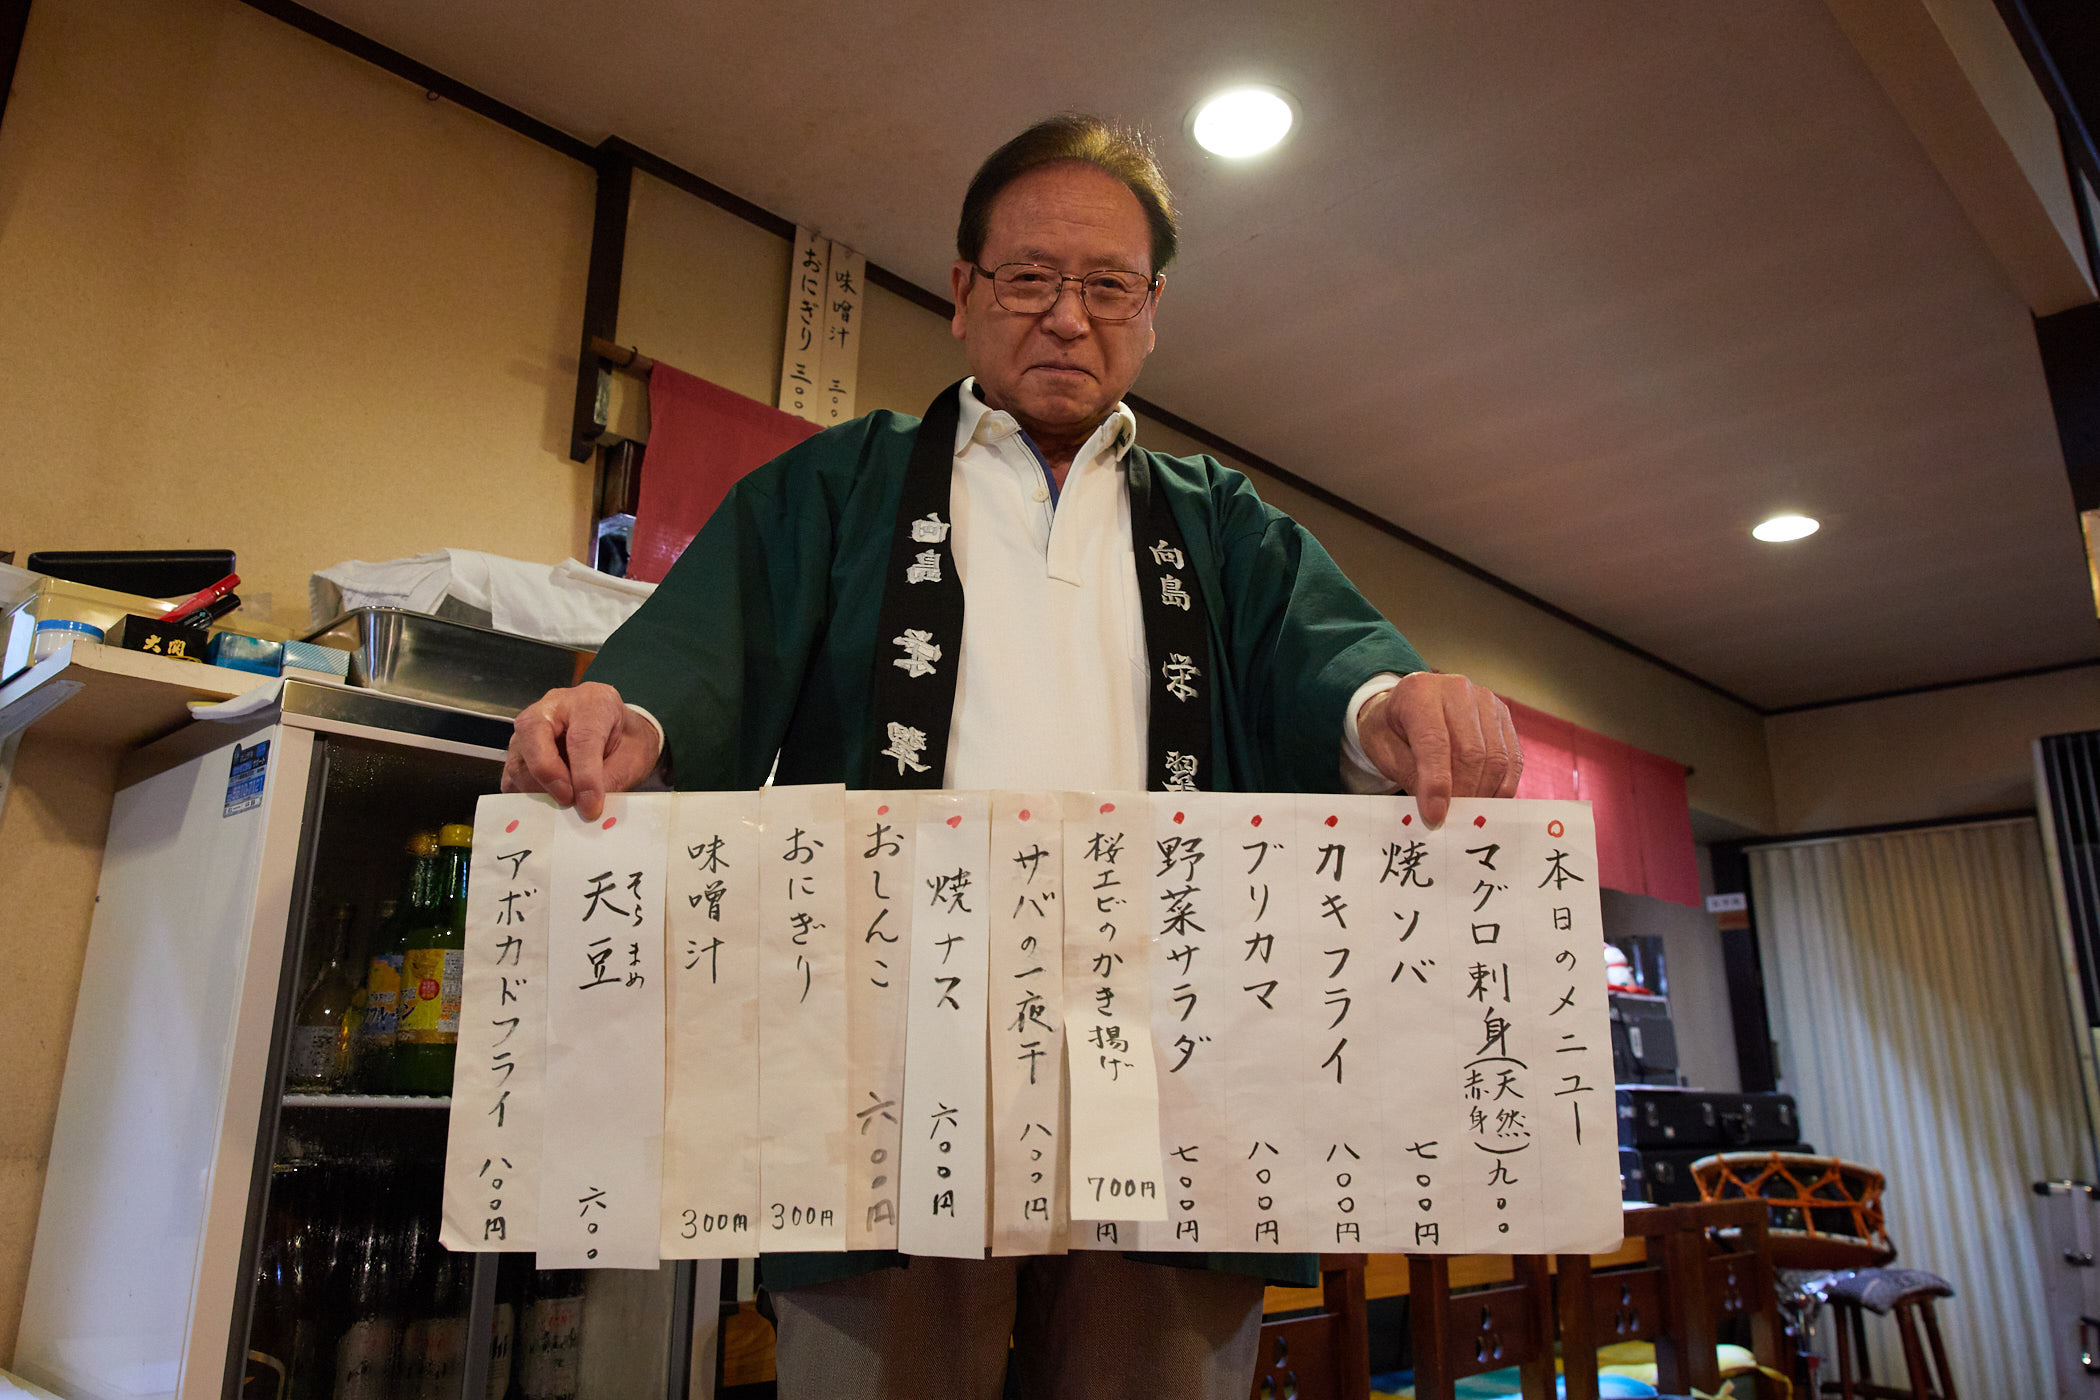 本日のメニュー
マグロ刺身(天然赤身)九〇〇
焼ソバ 七〇〇円
カキフライ 八〇〇円
ブリカマ 八〇〇円
野菜サラダ 七〇〇円
桜エビのかき揚げ 700円
円
サバの一夜干 八〇〇円
焼ナス 六〇〇円
おしんこ 六〇〇円
おにぎり 300円
味噌汁 300円
天豆 六〇〇
そらまめ
アボカドフライ 八〇〇円
味噌汁 三〇〇
おにぎり 三〇〇
向島 栄翠
向島 栄翠
大関